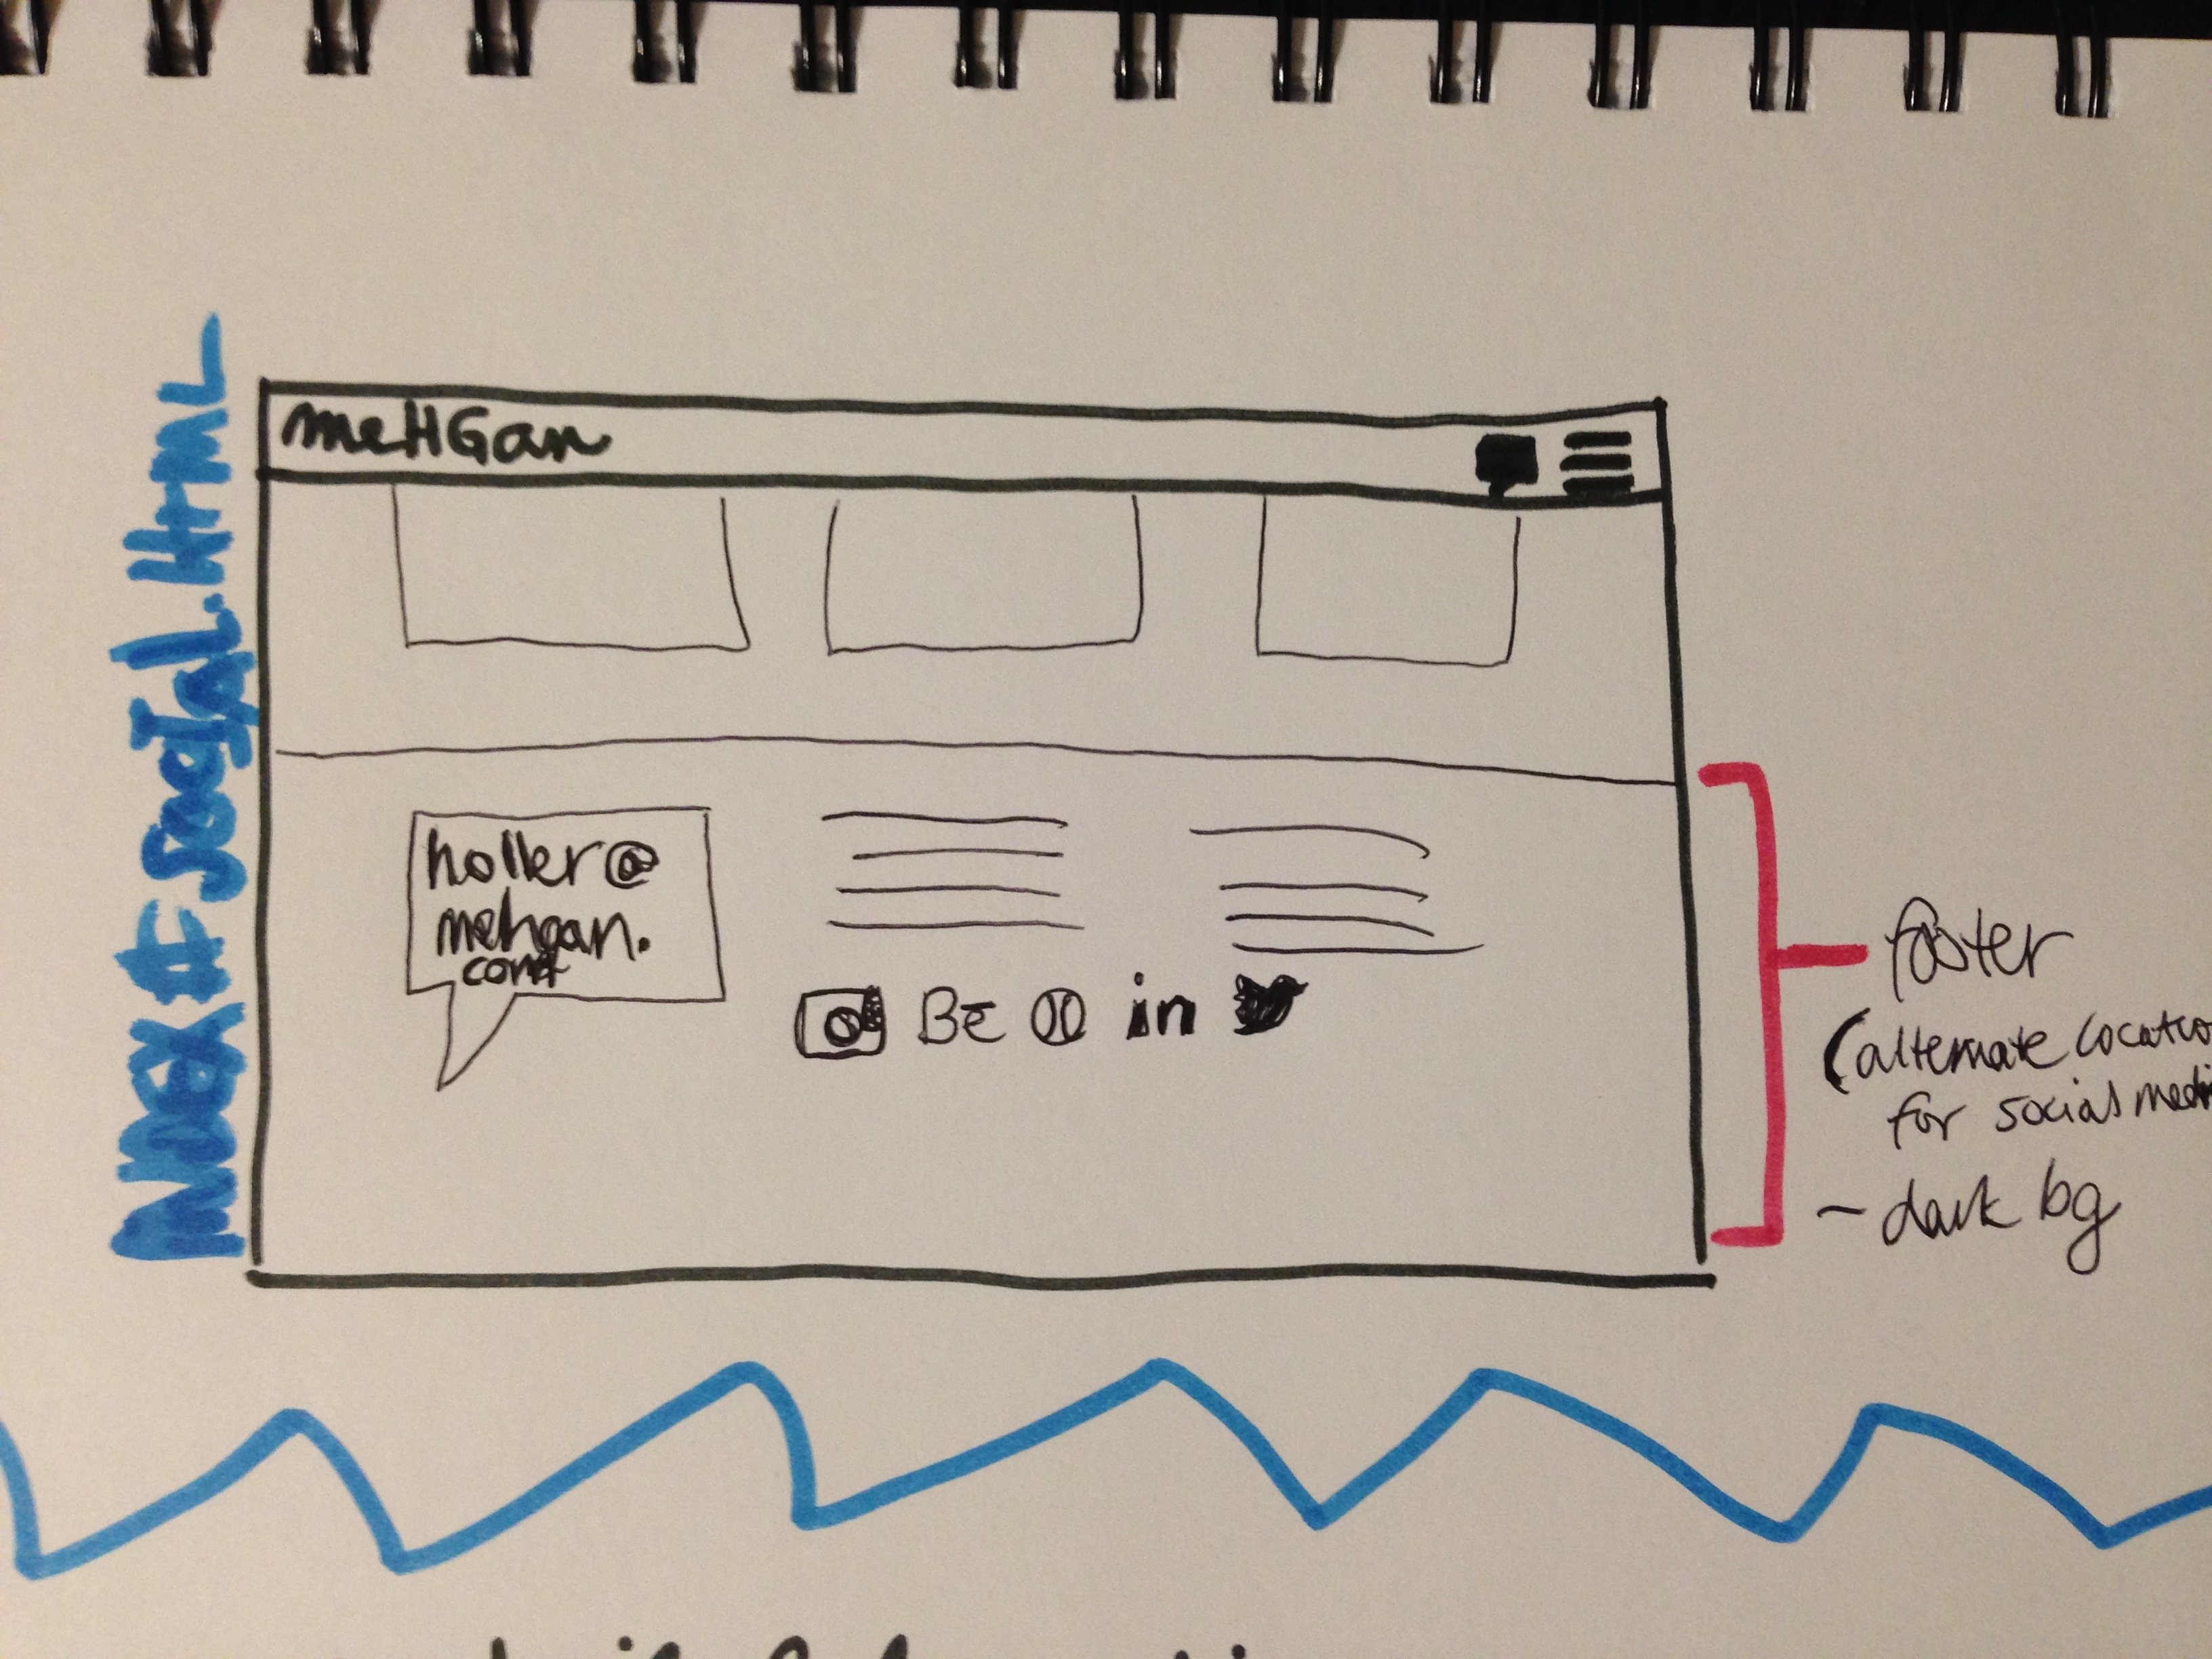 INDEX#SocIaL.HTML
meHGan
holler@
mehgan.
com
Be in
footer
(alternate locatio
for social medi
- dark bg